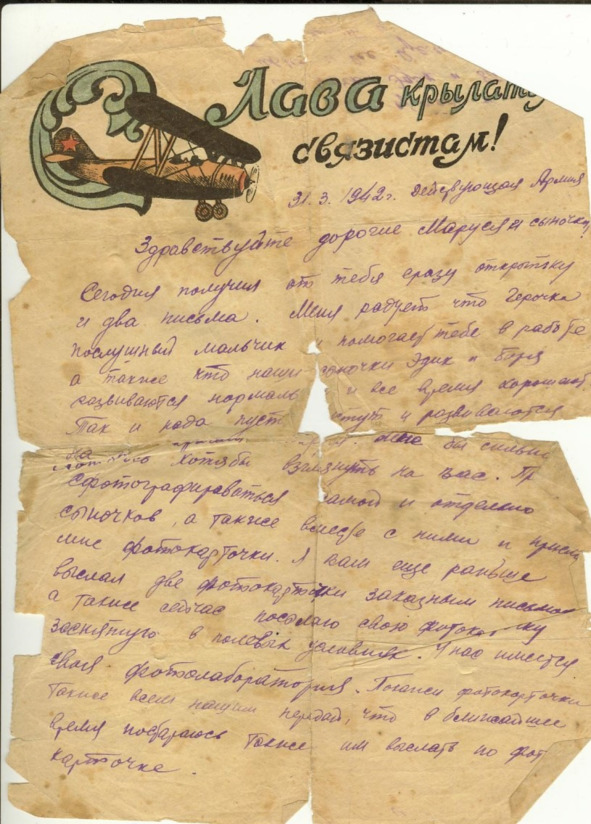 Лава крылату
связистам!
31.3.1942г. Действующая Армия
Здравствуйте дорогие Маруся и сыночки,
Сегодня получил от тебя сразу открытку
и два письма. Меня радует что Герочка
послушный мальчик и помогает тебе в работе
а также что наши сыночки Эдик и Боря
развиваются нормаль и все время хорошают.
Так и надо пуст стут и развиваются
хотябы взглянуть на вас. Пр
сфотографироваться самой и отдельно
сыночков, а также вместе с ними и присл
мне фотокарточки. Я вам еще раньше
выслал две фотокарточки заказным письмом
а также сейчас посылаю свою фоток ку
заснятую в полевых условиях. У нас имеется
своя фотолаборатория. Покажи фотокарточки
также всем нашим передай, что в ближайшее
время постараюсь также им выслать по фот
карточке.